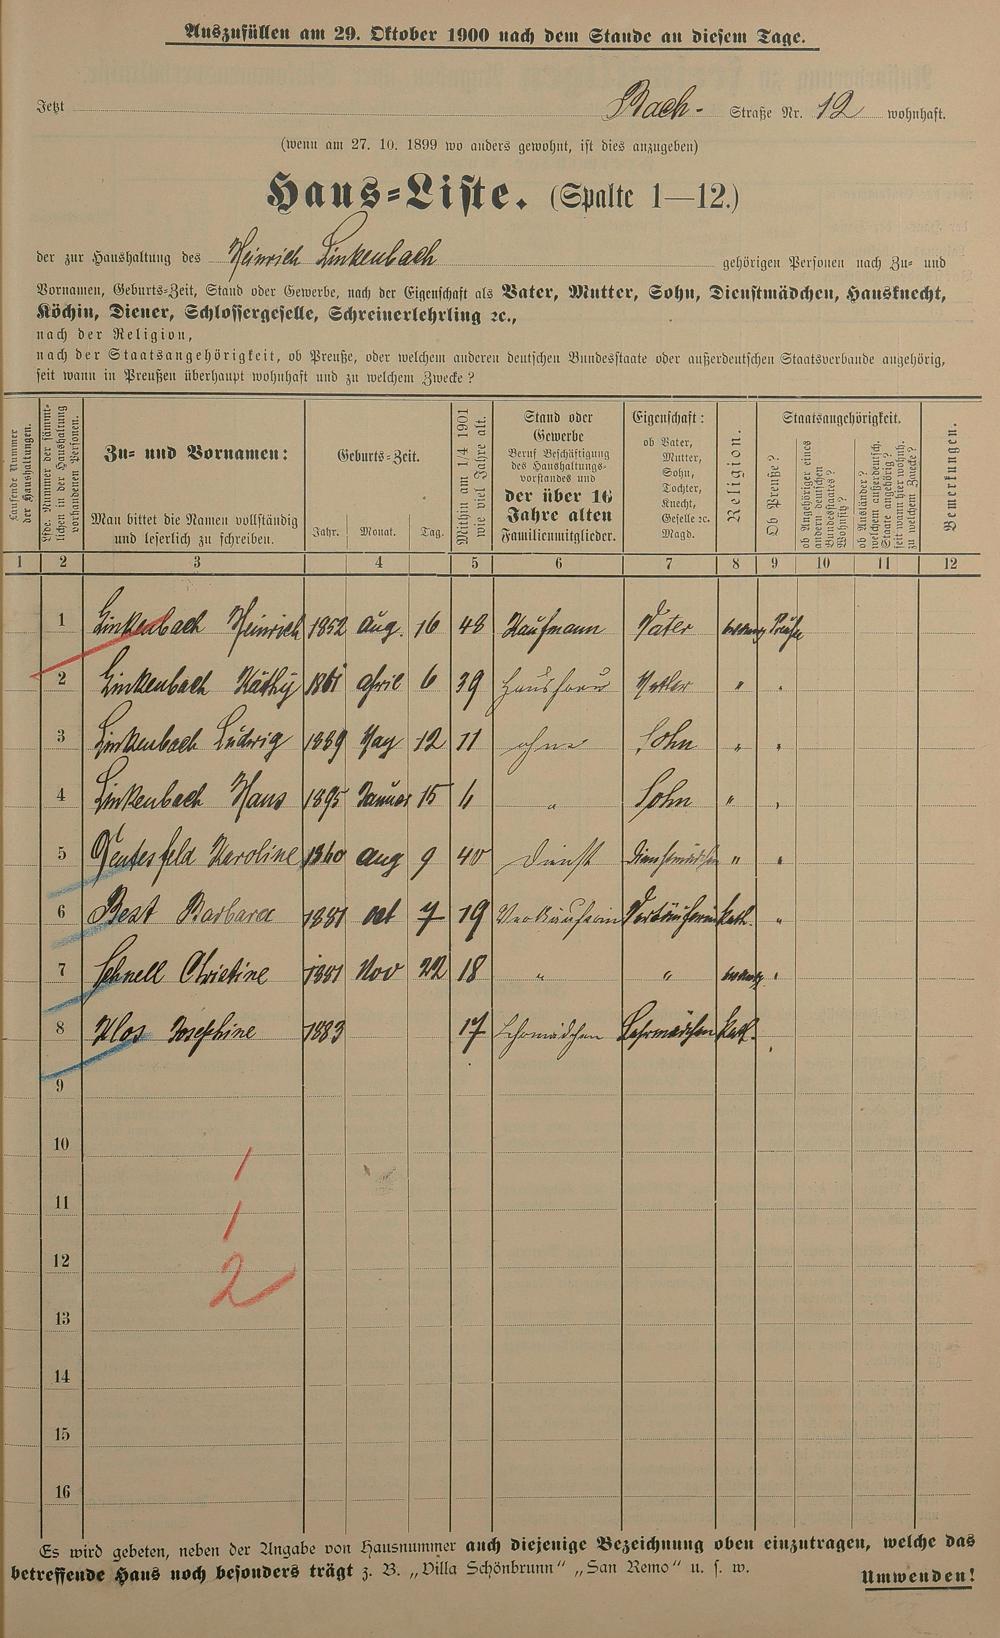 Auszufüllen am 29. Oktober 1900 nach dem Stande an diesem Tage.
Jetzt Bach- Straße Nr. 12 wohnhaft.
(wenn am 27. 10. 1899 wo anders gewohnt, ist dies anzugeben)
Haus-Liste. (Spalte 1—12.)
der zur Haushaltung des Heinrich Linkenbach gehörigen Personen nach Zu- und
Vornamen, Geburts-Zeit, Stand oder Gewerbe, nach der Eigenschaft als Vater, Mutter, Sohn, Dienstmädchen, Hausknecht,
Köchin, Diener, Schlossergeselle, Schreinerlehrling ꝛc.,
nach der Religion,
nach der Staatsangehörigkeit, ob Preuße, oder welchem anderen deutschen Bundesstaate oder außerdeutschen Staatsverbande angehörig,
seit wann in Preußen überhaupt wohnhaft und zu welchem Zwecke?
Laufende Nummer der Haushaltungen.
Lfde. Nummer der sämmtlichen in der Haushaltung vorhandenen Personen.
Zu- und Vornamen:
Man bittet die Namen vollständig
und leserlich zu schreiben.
Geburts-Zeit.
Jahr. Monat. Tag.
Mithin am 1/4 1901 wie viel Jahre alt.
Stand oder
Gewerbe
Beruf Beschäftigung
des Haushaltungs-
vorstandes und
der über 16
Jahre alten
Familienmitglieder.
Eigenschaft:
ob Vater,
Mutter,
Sohn,
Tochter,
Knecht,
Geselle ꝛc.
Magd.
Religion.
Staatsangehörigkeit.
Ob Preuße?
ob Angehöriger eines andern deutschen Bundesstaates? Wohnsitz?
ob Ausländer? welchem außerdeutsch. Staate angehörig? seit wann hier wohnh. zu welchem Zwecke?
Bemerkungen.
1 2 3 4 5 6 7 8 9 10 11 12
1 Linkenbach Heinrich 1852 aug. 16 48 Kaufmann Vater evang Preuße
2 Linkenbach Käthy 1861 april 6 39 Hausfrau Mutter "
3 Linkenbach Ludwig 1889 May 12 11 ohne Sohn " "
4 Linkenbach Hans 1895 Januar 15 6 " Sohn "
5 Karoline 1860 aug 9 40 Dienst Dienstmädchen " "
6 Best Barbara 1881 oct 7 19 Verkäuferin Verkäuferin kath. "
7 Schnell Christine 1881 Nov 22 18 " " evang "
8 Klos Josephine 1883 17 Lehrmädchen Lehrmädchen kath.
9
10
1
11
1
12
2
13
14
15
16
Es wird gebeten, neben der Angabe von Hausnummer auch diejenige Bezeichnung oben einzutragen, welche das
betreffende Haus noch besonders trägt z. B. „Villa Schönbrunn" „San Remo" u. s. w.
Umwenden!